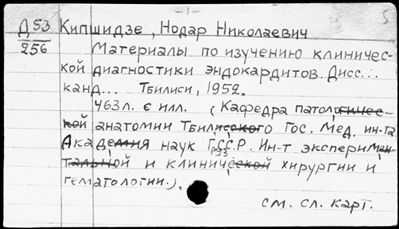 Д53 Кипшидзе, Нодар Николаевич
256
Материалы по изучению клиничес-
кой диагностики эндокардитов. Дисс...
канд... Тбилиси, 1952.
463л. с илл. (Кафедра патологичес-
кой анатомии Тбилисского Гос. Мед. ин-та
Академия наук ГССР. Ин-т эксперимен-
тальной и клинической хирургии и
гематологии.).
см. сл. карт.